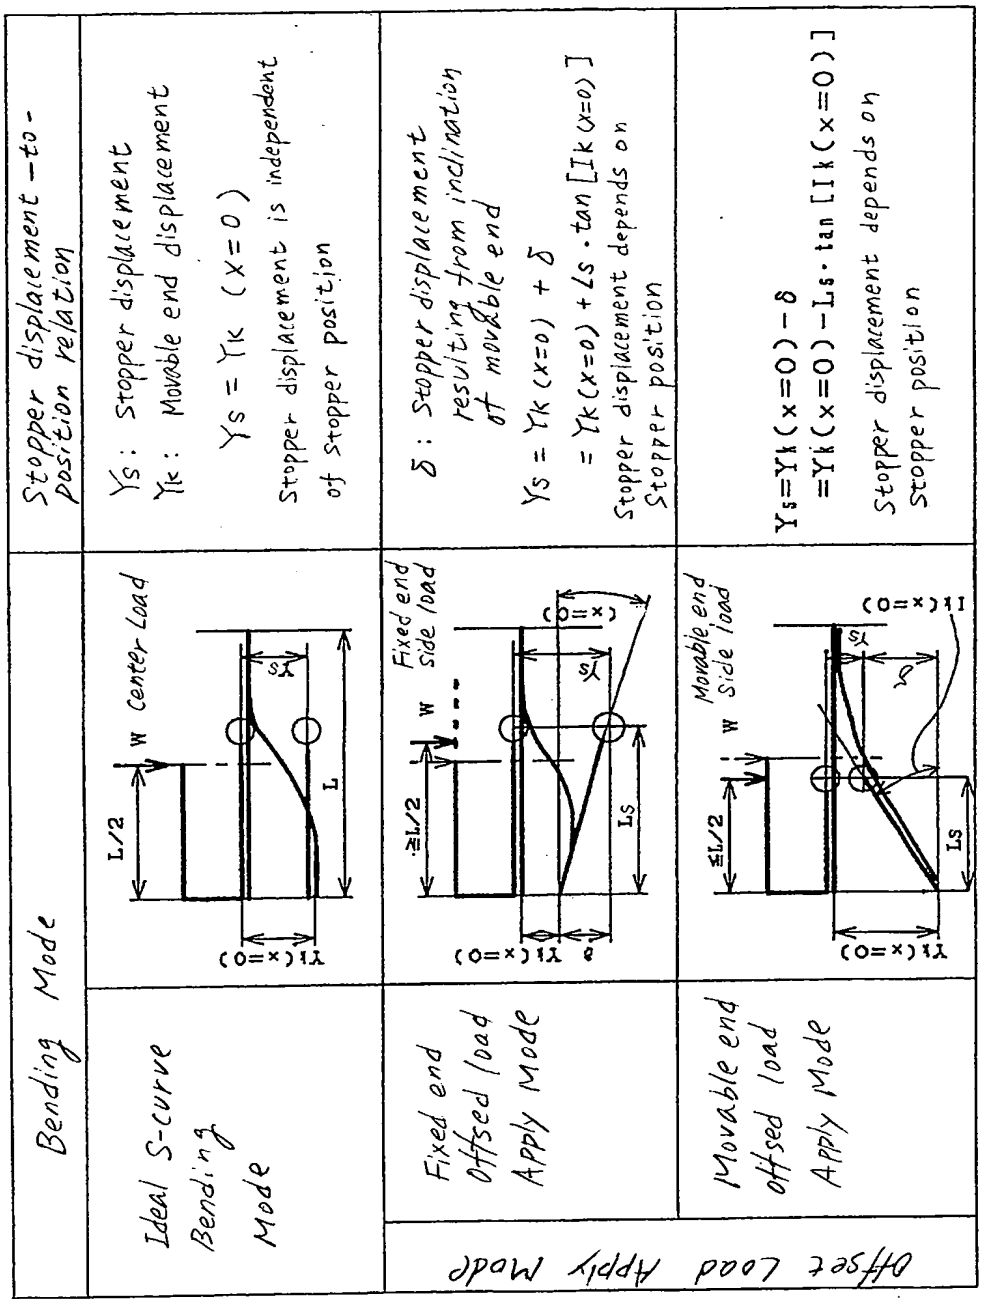 Bending Mode
Stopper displacement-to-
position relation
Ideal S-curve
Bending
Mode
L/2
W Center Load
Yk(x=0)
Ys
L
Ys: Stopper displacement
Yk: Movable end displacement
Ys = Yk (x=0)
Stopper displacement is independent
of stopper position
Offset Load Apply Mode
Fixed end
Offsed load
Apply Mode
≧L/2
W
Fixed end
side load
Yk(x=0)
δ
Ys
(x=0)
Ls
δ: Stopper displacement
resulting from inclination
of movable end
Ys = Yk(x=0) + δ
= Yk(x=0) + Ls·tan[Ik(x=0)]
Stopper displacement depends on
Stopper position
Movable end
offsed load
Apply Mode
≦L/2
W
Movable end
side load
Yk(x=0)
Ys
δ
Ik(x=0)
Ls
Ys=Yk(x=0)-δ
=Yk(x=0)-Ls·tan[Ik(x=0)]
Stopper displacement depends on
stopper position